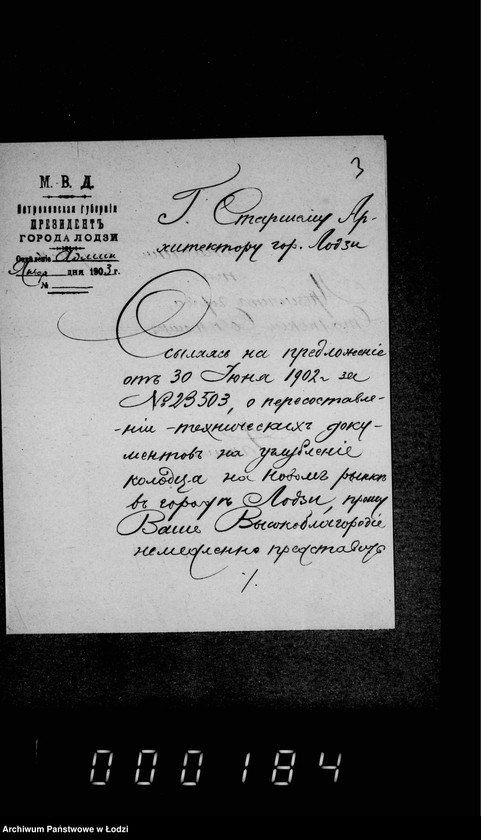 3
М. В. Д.
Петроковская губернія
ПРЕЗИДЕНТЪ
ГОРОДА ЛОДЗИ
Отдѣленіе Админ
Янвр дня 1903 г.
№
Г. Старшему Ар-
хитектору гор. Лодзи
Ссылаясь на предложеніе
отъ 30 Іюня 1902 г за
№ 23503, о пересоставле-
-ніи техническихъ доку-
ментовъ на углубленіе
колодца на новомъ рынкѣ
въ городѣ Лодзи, прошу
Ваше Высокоблагородіе
немедленно представить
./.
000184
Archiwum Państwowe w Łodzi